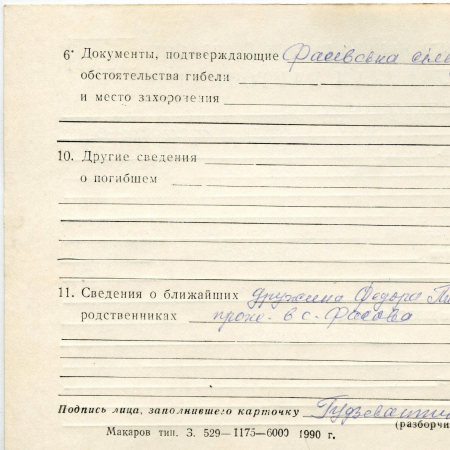 6· Документы, подтверждающие Фасівська
обстоятельства гибели
и место захоронения
10. Другие сведения
о погибшем
11. Сведения о ближайших дружина Федора
родственниках прож. в с. Фасова
Подпись лица, заполнившего карточку
(разборчи
Макаров тип. З. 529—1175—6000 1990 г.